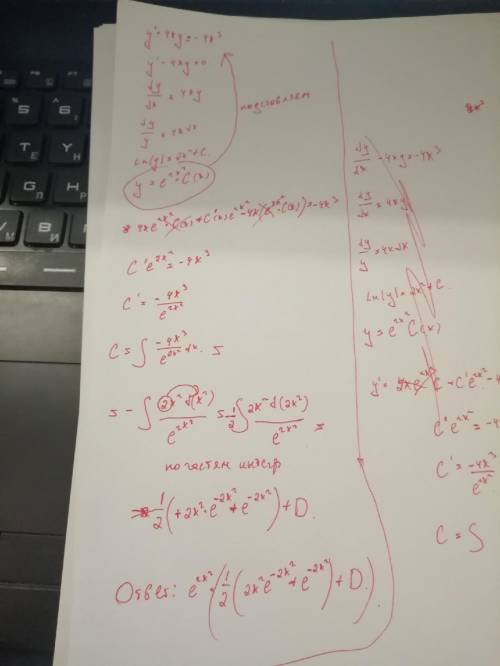 y' - 4xy = -4x³
y' - 4xy = 0
dy/dx = 4xy
dy/y = 4xdx
ln|y| = 2x² + C
y = e^{2x²} C(x)
подставляем
4xe^{2x²} C(x) + C'(x) e^{2x²} - 4x(e^{2x²} C(x)) = -4x³
C' e^{2x²} = -4x³
C' = -4x³/e^{2x²}
C = ∫ -4x³/e^{2x²} dx =
= -∫ 2x² d(x²)/e^{2x²} = -1/2 ∫ 2x² d(2x²)/e^{2x²} =
по частям интегр
1/2 (+2x² · e^{-2x²} + e^{-2x²}) + D.
Ответ: e^{2x²} · (1/2 (2x² e^{-2x²} + e^{-2x²}) + D).
dy/dx - 4xy = -4x³
dy/dx = 4xy
dy/y = 4xdx
ln|y| = 2x² + C.
y = e^{2x²} C(x)
y' = 4xe^{2x²} C + C' e^{2x²} - 4
C' e^{2x²} = -4
C' = -4x³/e^{2x²}
C = ∫
Ь
Б
Ю
Т
И
Н
Г
О
Р
П